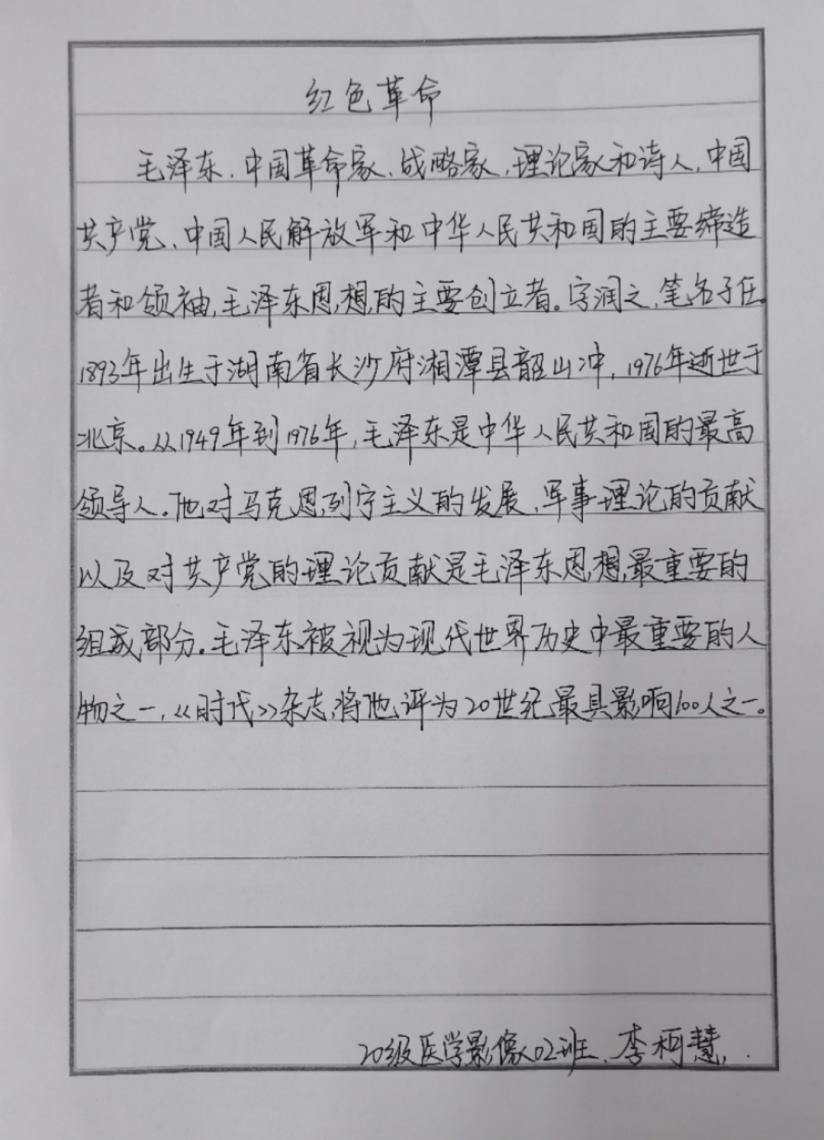 红色革命
毛泽东，中国革命家、战略家，理论家和诗人，中国
共产党、中国人民解放军和中华人民共和国的主要缔造
者和领袖，毛泽东思想的主要创立者。字润之，笔名子任。
1893年出生于湖南省长沙府湘潭县韶山冲，1976年逝世于
北京。从1949年到1976年，毛泽东是中华人民共和国的最高
领导人。他对马克思列宁主义的发展、军事理论的贡献
以及对共产党的理论贡献是毛泽东思想最重要的
组成部分。毛泽东被视为现代世界历史中最重要的人
物之一，《时代》杂志将他评为20世纪最具影响100人之一。
20级医学影像02班、李柯慧.